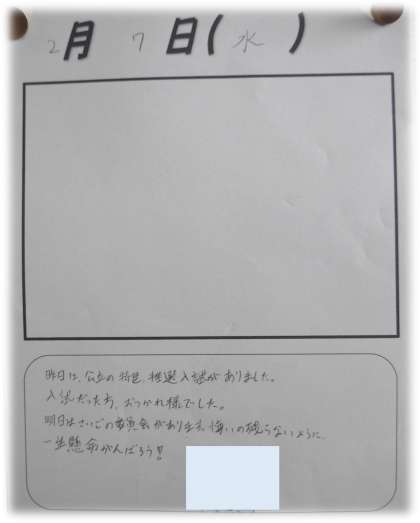 2月 7日(水)
昨日は、公立の特色、推選入試がありました。
入試だった方、おつかれ様でした。
明日はさいごの委員会があります。悔いの残らないように、
一生懸命がんばろう!!